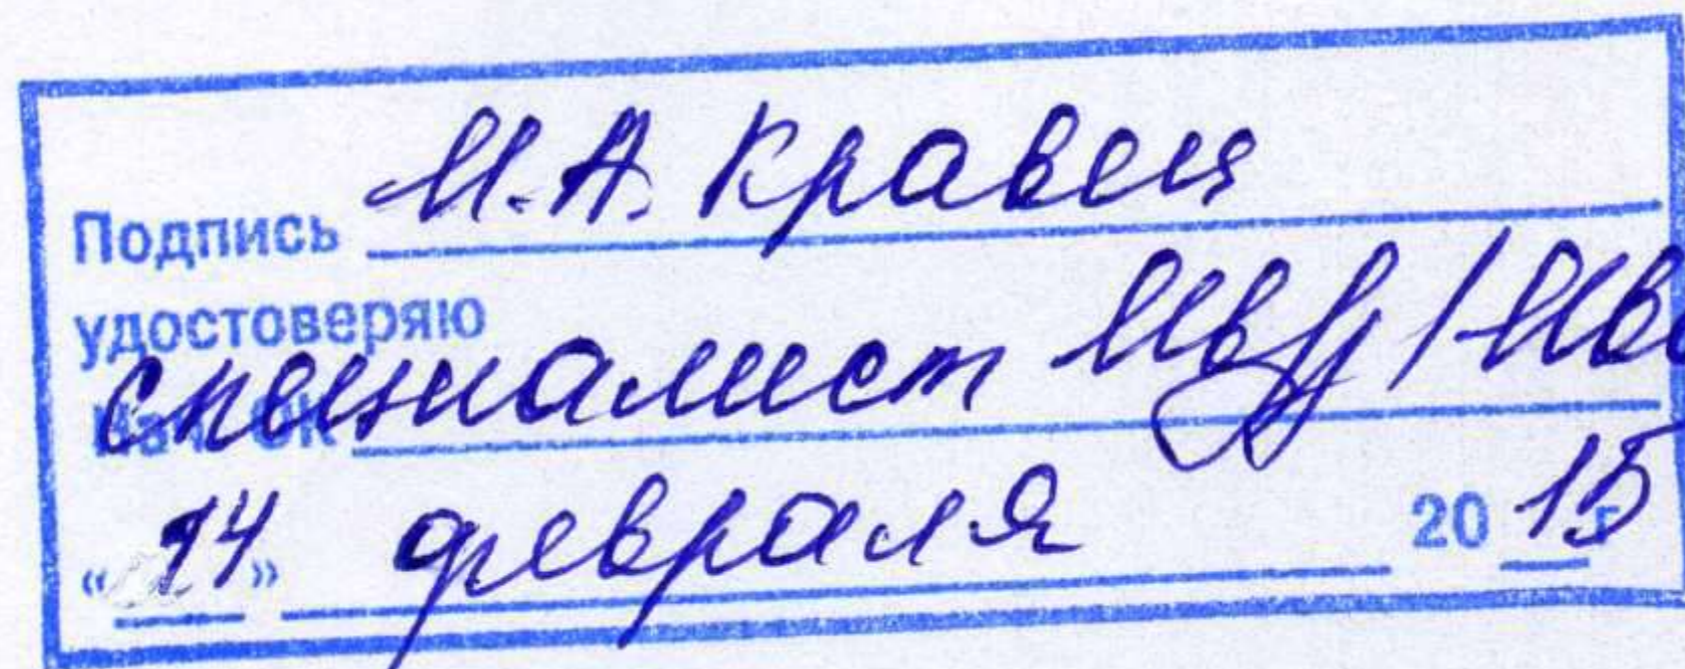 Подпись М.А. Кравец
удостоверяю
специалист
Нач. ОК
"14" февраля 2015 г